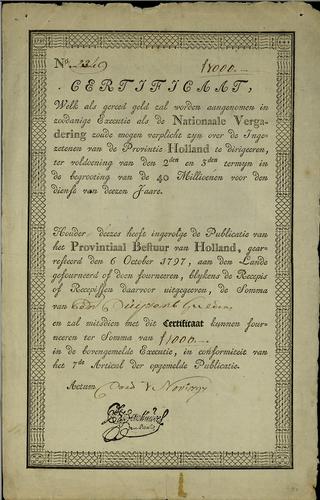 No. 2249 f 1000.-
CERTIFICAAT,
Welk als gereed geld zal worden aangenomen in
zoodanige Executie als de Nationale Verga-
dering zoude mogen verplicht zyn over de Inge-
zetenen van de Provintie Holland te dirigeeren,
ter voldoening van den 2den en 3den termyn in
de begrooting van de 40 Millioenen voor den
dienst van deezen Jaare.
Houder deezes heeft ingevolge de Publicatie van
het Provintiaal Bestuur van Holland, gear-
resteerd den 6 October 1797, aan den Lande
gefourneerd of doen fourneeren, blykens de Recepis
of Recepissen daarvoor uitgegeeven, de Somma
van Duyzent Gulden
en zal mitsdien met dit Certificaat kunnen four-
neeren ter Somma van f 1000.-
in de bovengemelde Executie, in conformiteit van
het 7de Articul der opgemelde Publicatie.
Actum Nov 1797